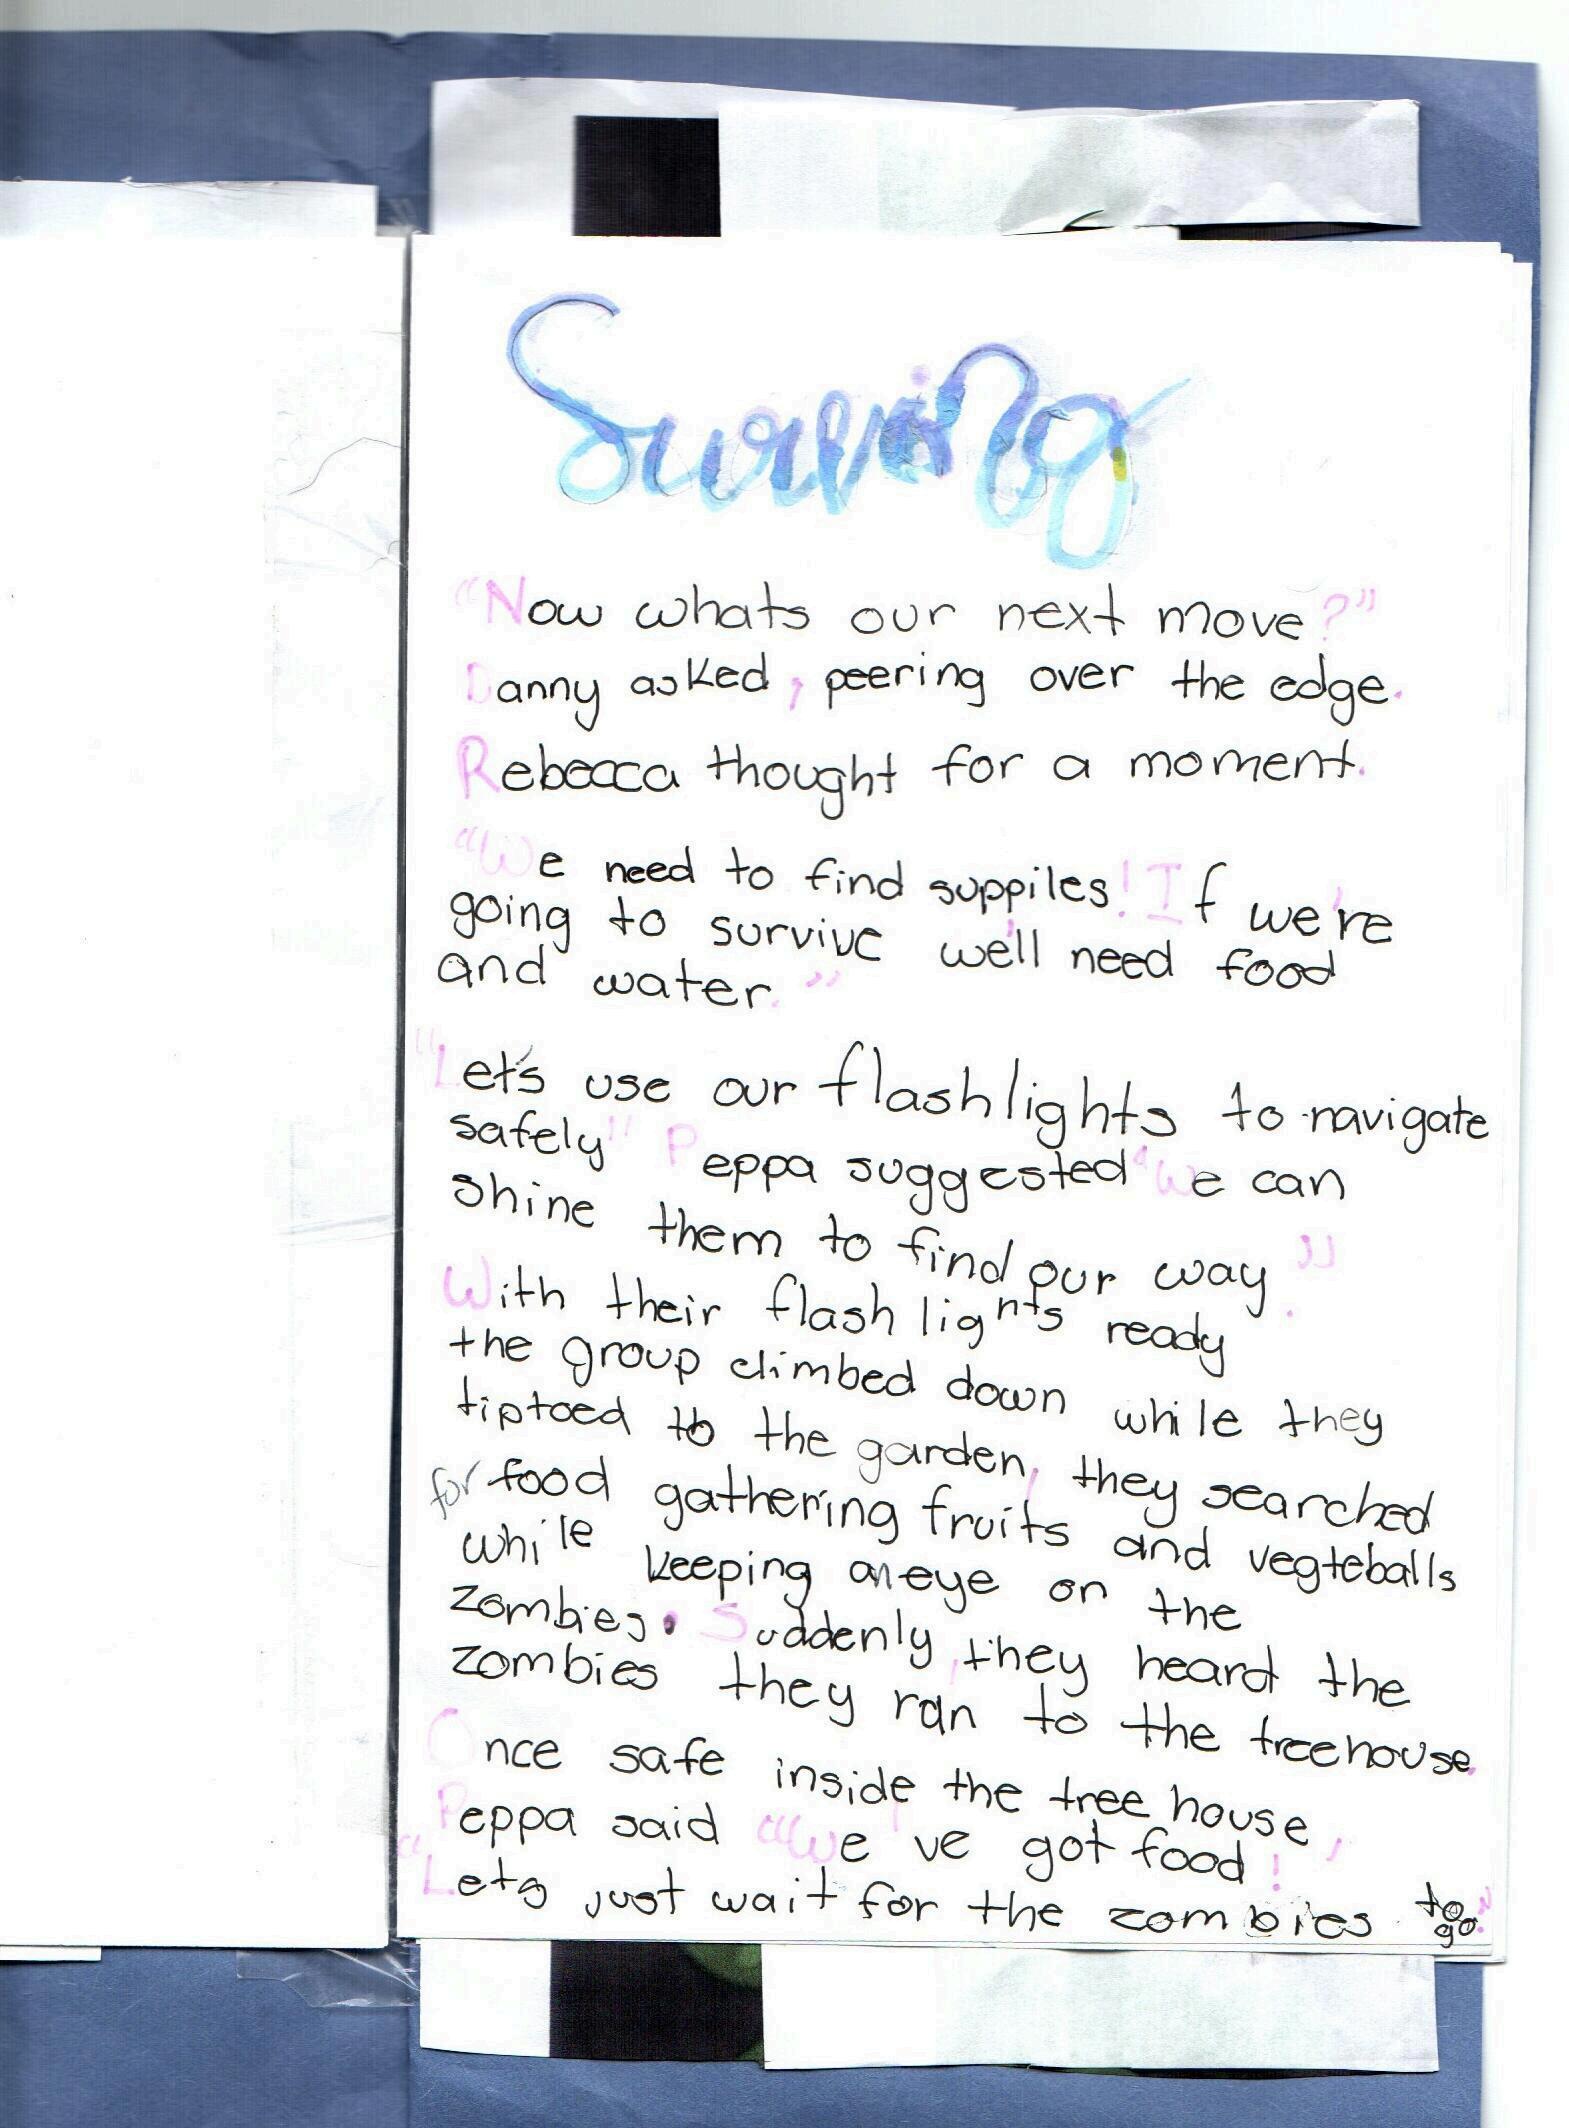 Surving
"Now whats our next move?"
Danny asked, peering over the edge.
Rebecca thought for a moment.
"We need to find suppiles! If we're
going to survive we'll need food
and water."
"Let's use our flashlights to navigate
safely" Peppa suggested "We can
shine them to find our way."
With their flash lights ready
the group climbed down while they
tiptoed to the garden, they searched
for food gathering fruits and vegteballs
while keeping an eye on the
zombies. Suddenly, they heard the
zombies they ran to the treehouse.
Once safe inside the tree house,
Peppa said "We've got food!
"Lets just wait for the zombies to
go."